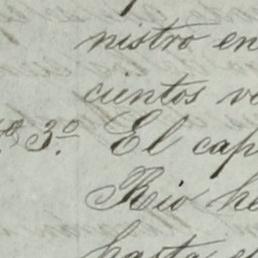 nistro en
cientos ve
3.º El cap
Rio he
hasta el